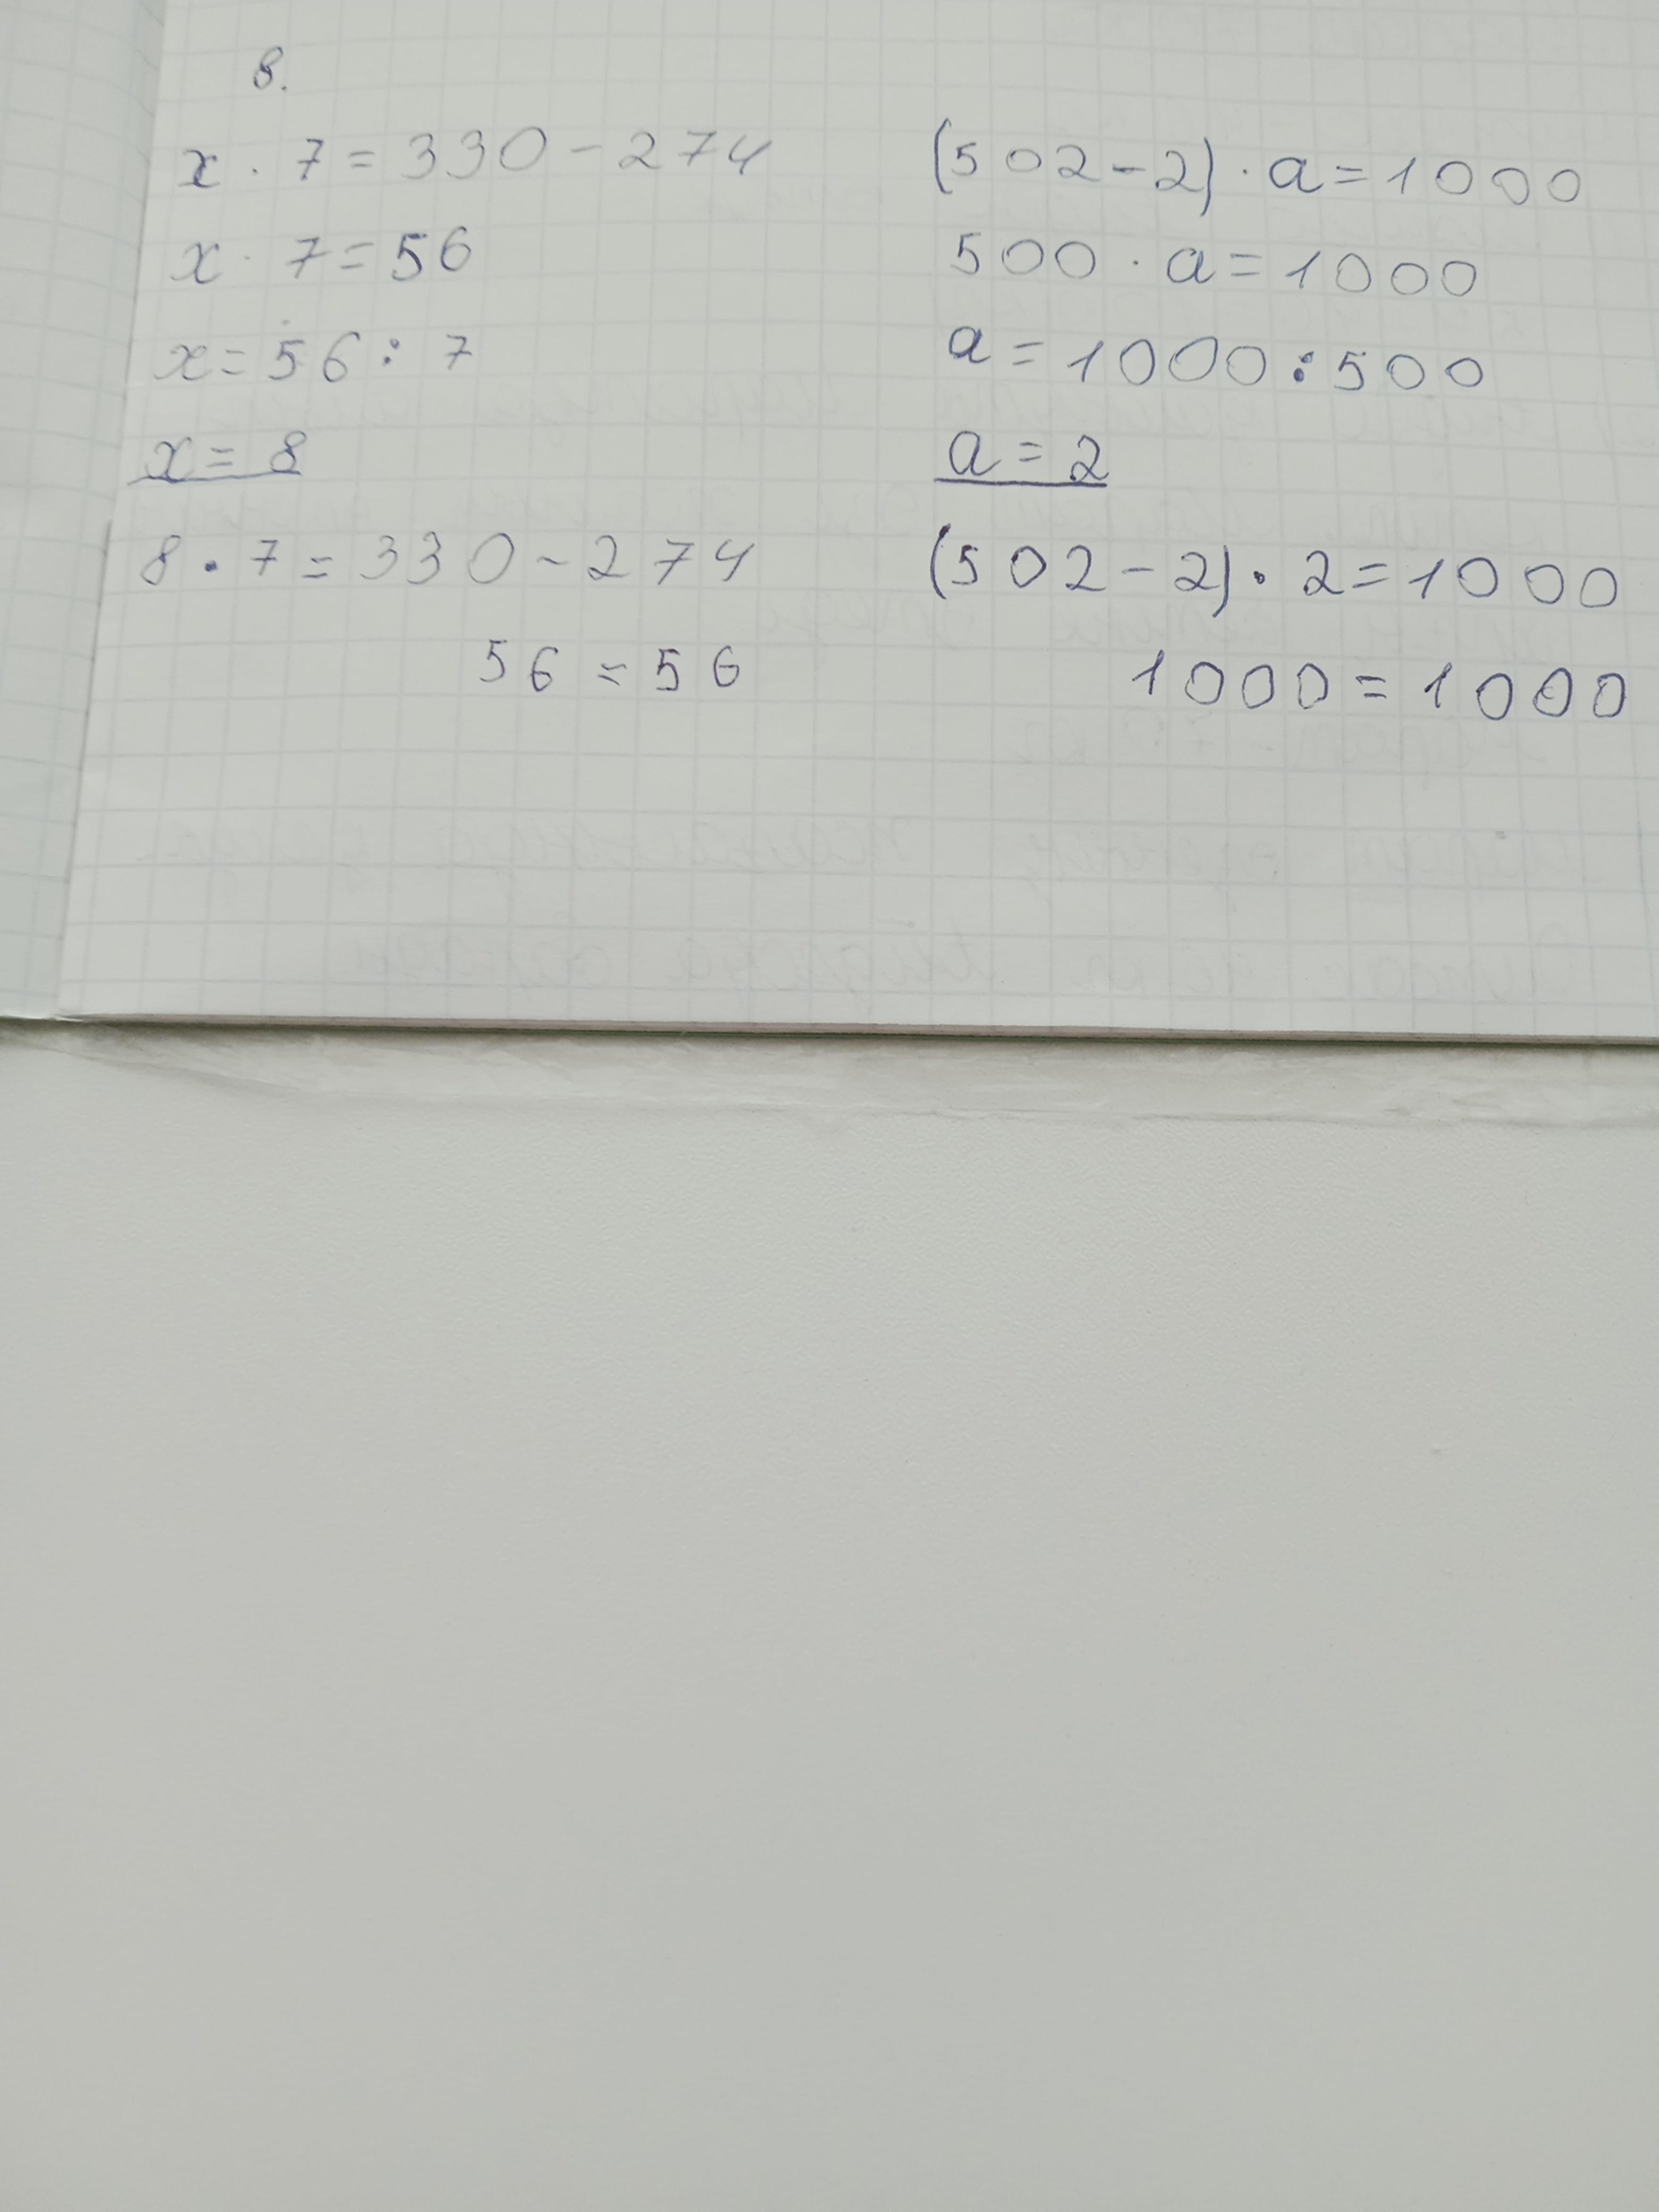 8.
x · 7 = 330 - 274
x · 7 = 56
x = 56 : 7
x = 8
8 · 7 = 330 - 274
56 = 56
(502 - 2) · a = 1000
500 · a = 1000
a = 1000 : 500
a = 2
(502 - 2) · 2 = 1000
1000 = 1000